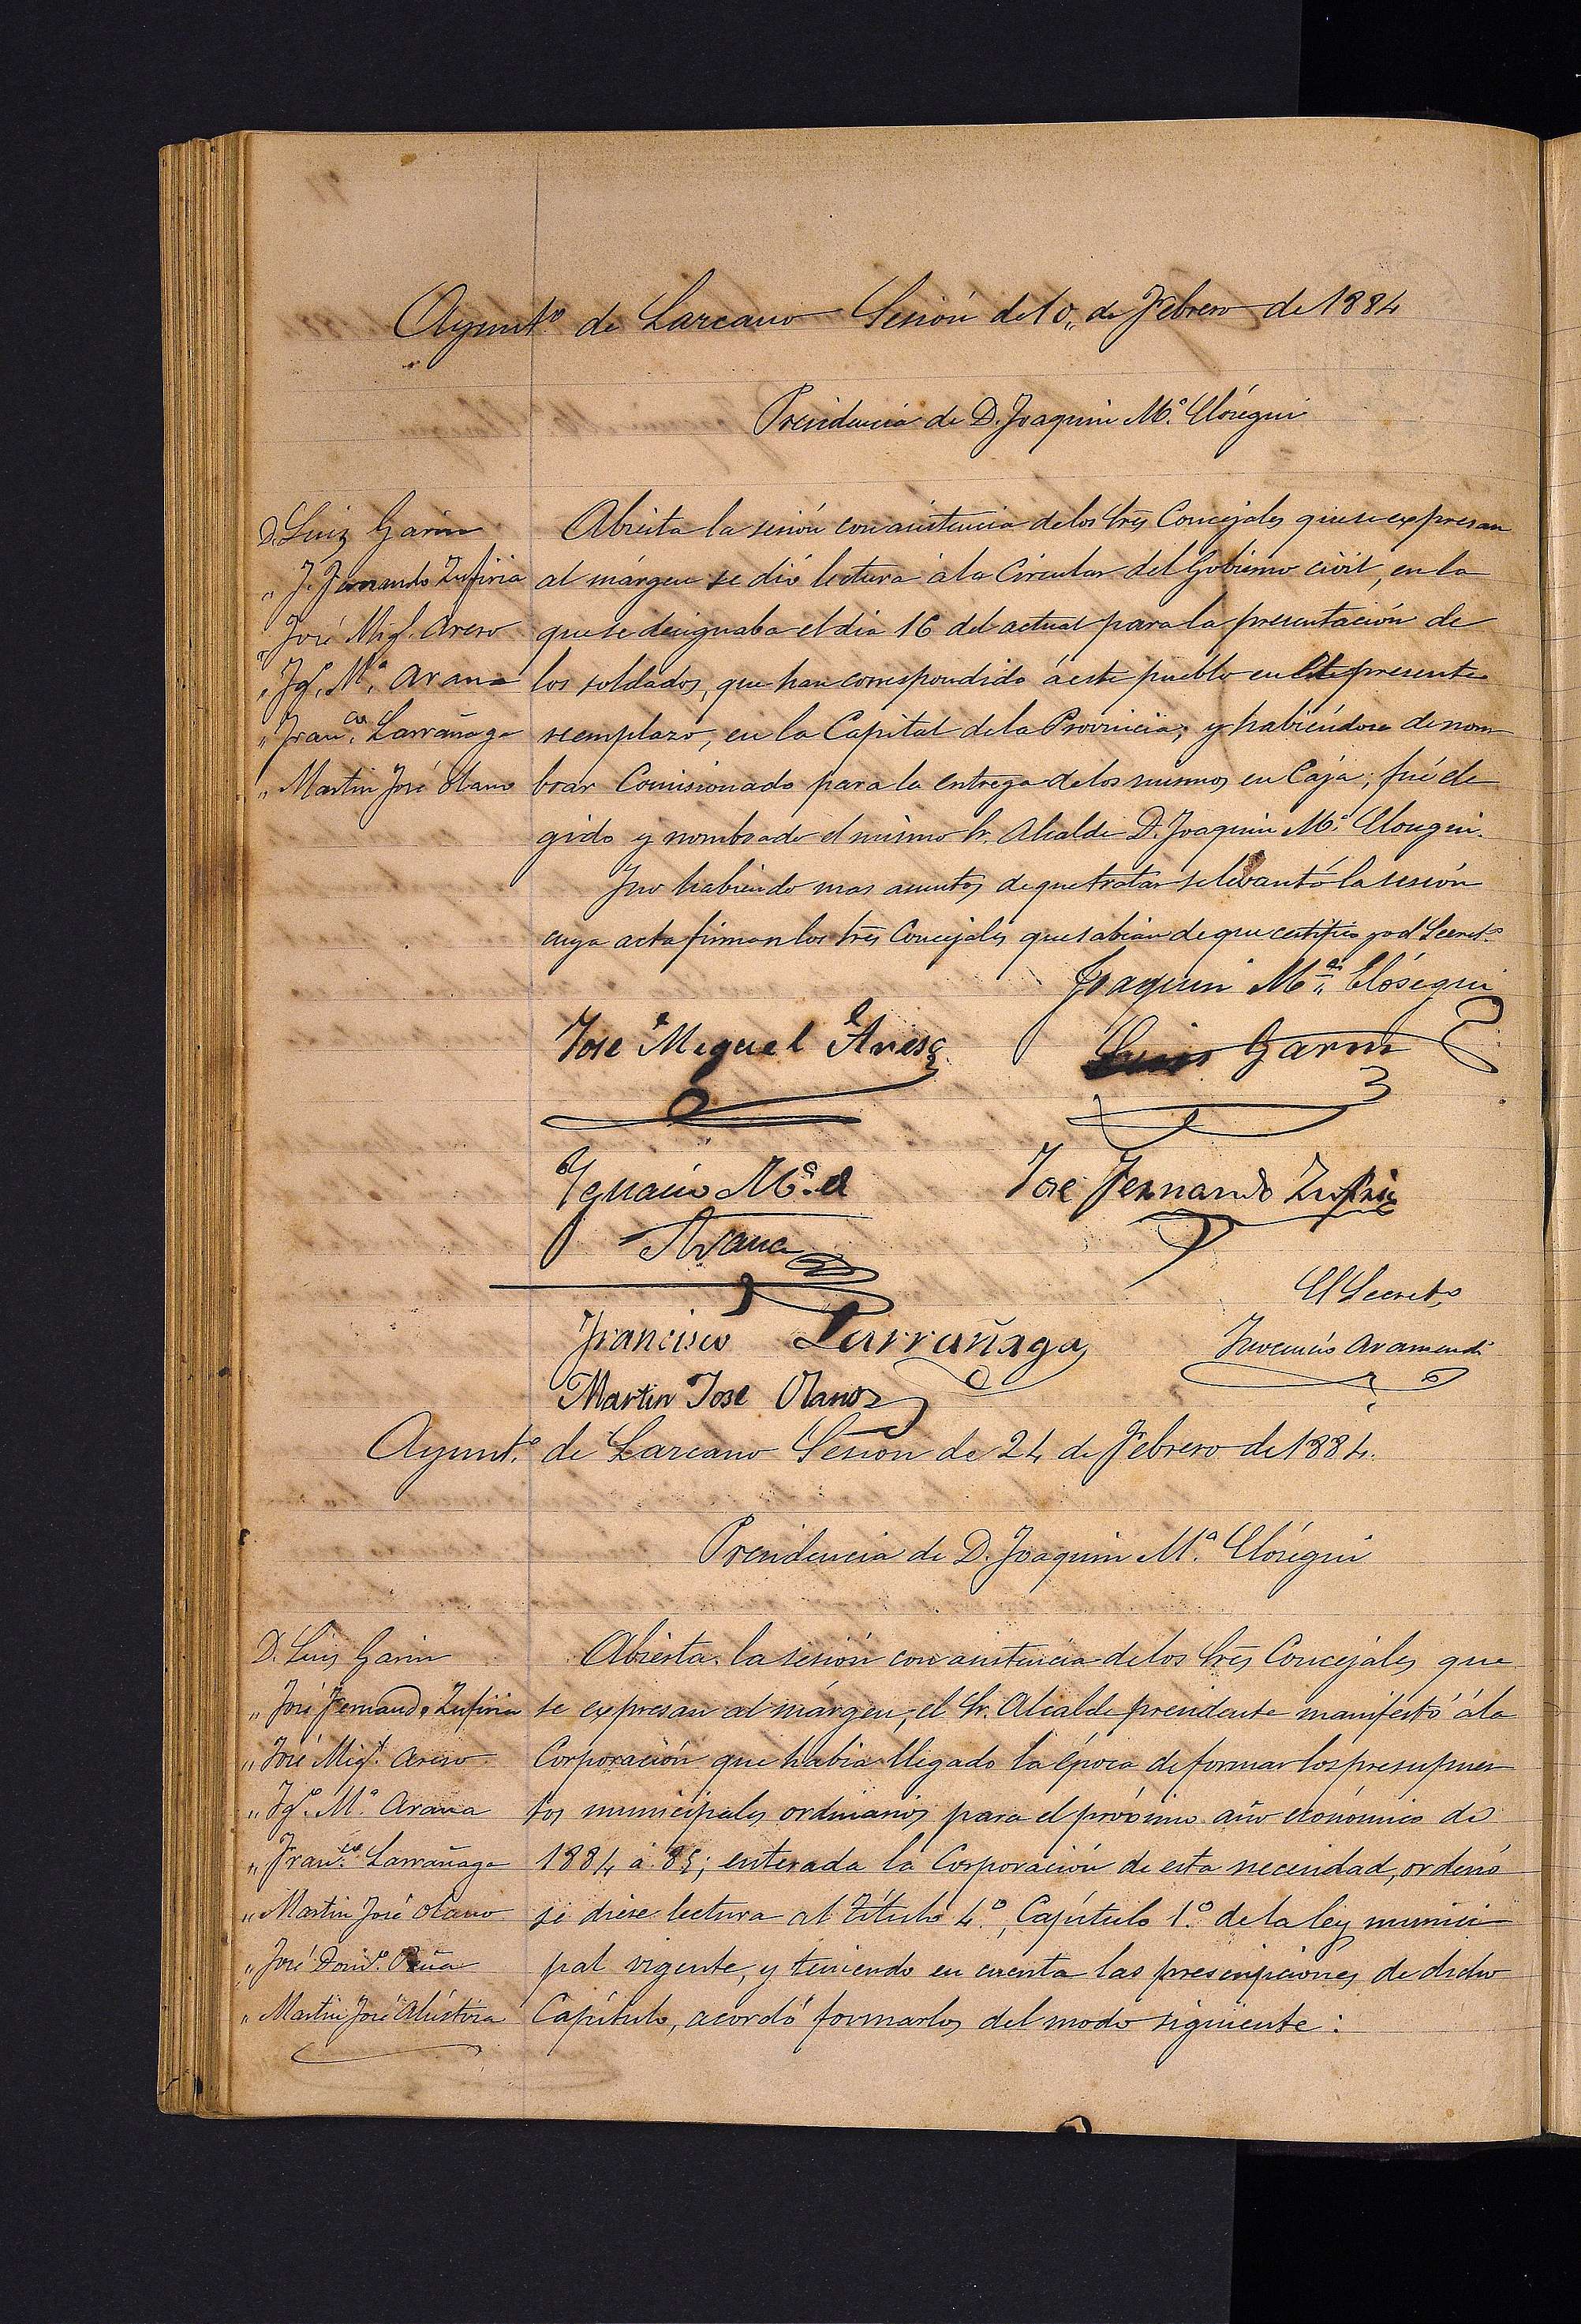 Ayunt.º de Lazcano Sesión de 10,, de Febrero de 1884
Presidencia de D. Joaquin M.ª Elósegui
D. Luiz Garin
,, J. Fernando Zufiria
,, José Migl. Areso
,, Ig.º M.ª Arana
,, Fran.co Larrañaga
,, Martin José Olano
Abierta la sesión con asistencia de los Srēs Concejales que se expresan
al márgen se dió lectura á la Circular del Gobierno civil, en la
que se designaba el dia 16 del actual para la presentación de
los soldados, que han correspondido á este pueblo en el presente
reemplazo, en la Capital de la Provincia; y habiéndose de nom
brar Comisionado para la entrega de los mismos en Caja; fué ele
gido y nombrado el mismo Sr. Alcalde D. Joaquin M.ª Elosegui.
Y no habiendo mas asuntos de que tratar se levantó la sesión
cuya acta firman los Srēs Concejales que sabian de que certifico yo el Secret.º
Joaquin M.ª Elósegui
José Miguel Areso
Luis Garin
Ygnacio M.ª de
Arana
José Fernando Zufiria
El Secret.º
Francisco Larrañaga
Juvencio Aramendi
Martin José Olano
Ayunt.º de Lazcano Sesión de 24 de Febrero de 1884.
Presidencia de D. Joaquin M.ª Elósegui
D. Luis Garin
,, José Fernando Zufiria
,, José Mig.l Areso
,, Ig.º M.ª Arana
,, Fran.co Larrañaga
,, Martin José Olano
,, José Dom.º
,, Martin José Alústiza
Abierta la sesión con asistencia de los Srēs Concejales que
se expresan al márgen, el Sr. Alcalde presidente manifestó á la
Corporación que habia llegado la época de formar los presupues
tos municipales ordinarios para el próximo año económico de
1884 á 85; enterada la Corporación de esta necesidad, ordenó
se diese lectura al Título 4.º, Capítulo 1.º de la ley munici
pal vigente, y teniendo en cuenta las prescripciones de dicho
Capítulo, acordó formarlos del modo siguiente: